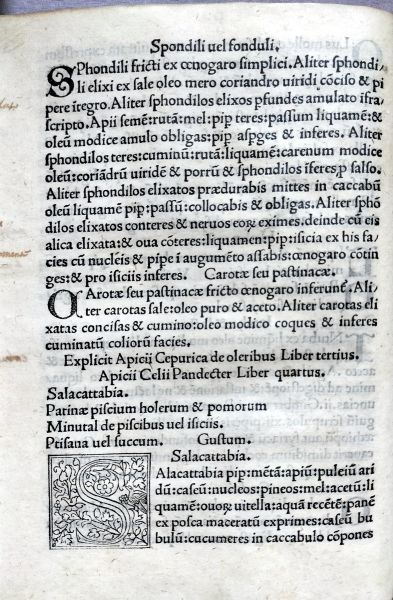 Spondili uel fonduli.
SPhondili fricti ex œnogaro simplici. Aliter sphondi-
li elixi ex sale oleo mero coriandro uiridi cōciso & pi
pere ītegro. Aliter sphondilos elixos pfundes amulato ifra-
scripto. Apii semē: rutā: mel: pip teres: passum liquamē: &
oleū modice amulo obligas: pip aspges & inferes. Aliter
sphondilos teres: cuminū: rutā: liquamē: carenum modice
oleū: coriādrū uiridē & porrū & sphondilos iferes p salso.
Aliter sphondilos elixatos prædurabis mittes in caccabū
oleū liquamē pip: passū: collocabis & obligas. Aliter sphō
dilos elixatos conteres & neruos eorꝝ eximes. deinde cū eis
alica elixata: & oua cōteres: liquamen: pip: isicia ex his fa-
cies cū nucleis & pipe ī augumēto assabis: œnogaro cōtin
ges: & pro isiciis inferes. Carotæ seu pastinacæ.
CArotæ seu pastinacæ fricto œnogaro inferunt̄. Ali
ter carotas sale: oleo puro & aceto. Aliter carotas eli
xatas concisas & cumino: oleo modico coques & inferes
cuminatū coliorū facies.
Explicit Apicii Cepurica de oleribus Liber tertius.
Apicii Celii Pandecter Liber quartus.
Salacattabia.
Patinæ piscium holerum & pomorum
Minutal de piscibus uel isiciis.
Ptisana uel succum. Gustum.
Salacattabia.
SAlacattabia pip: mētā: apiū: puleiū ari
dū: caseū: nucleos: pineos: mel: acetū: li
quamē: ouorꝝ uitella: aquā recētē: panē
ex posca maceratū exprimes: caseū bu
bulū: cucumeres in caccabulo cōpones